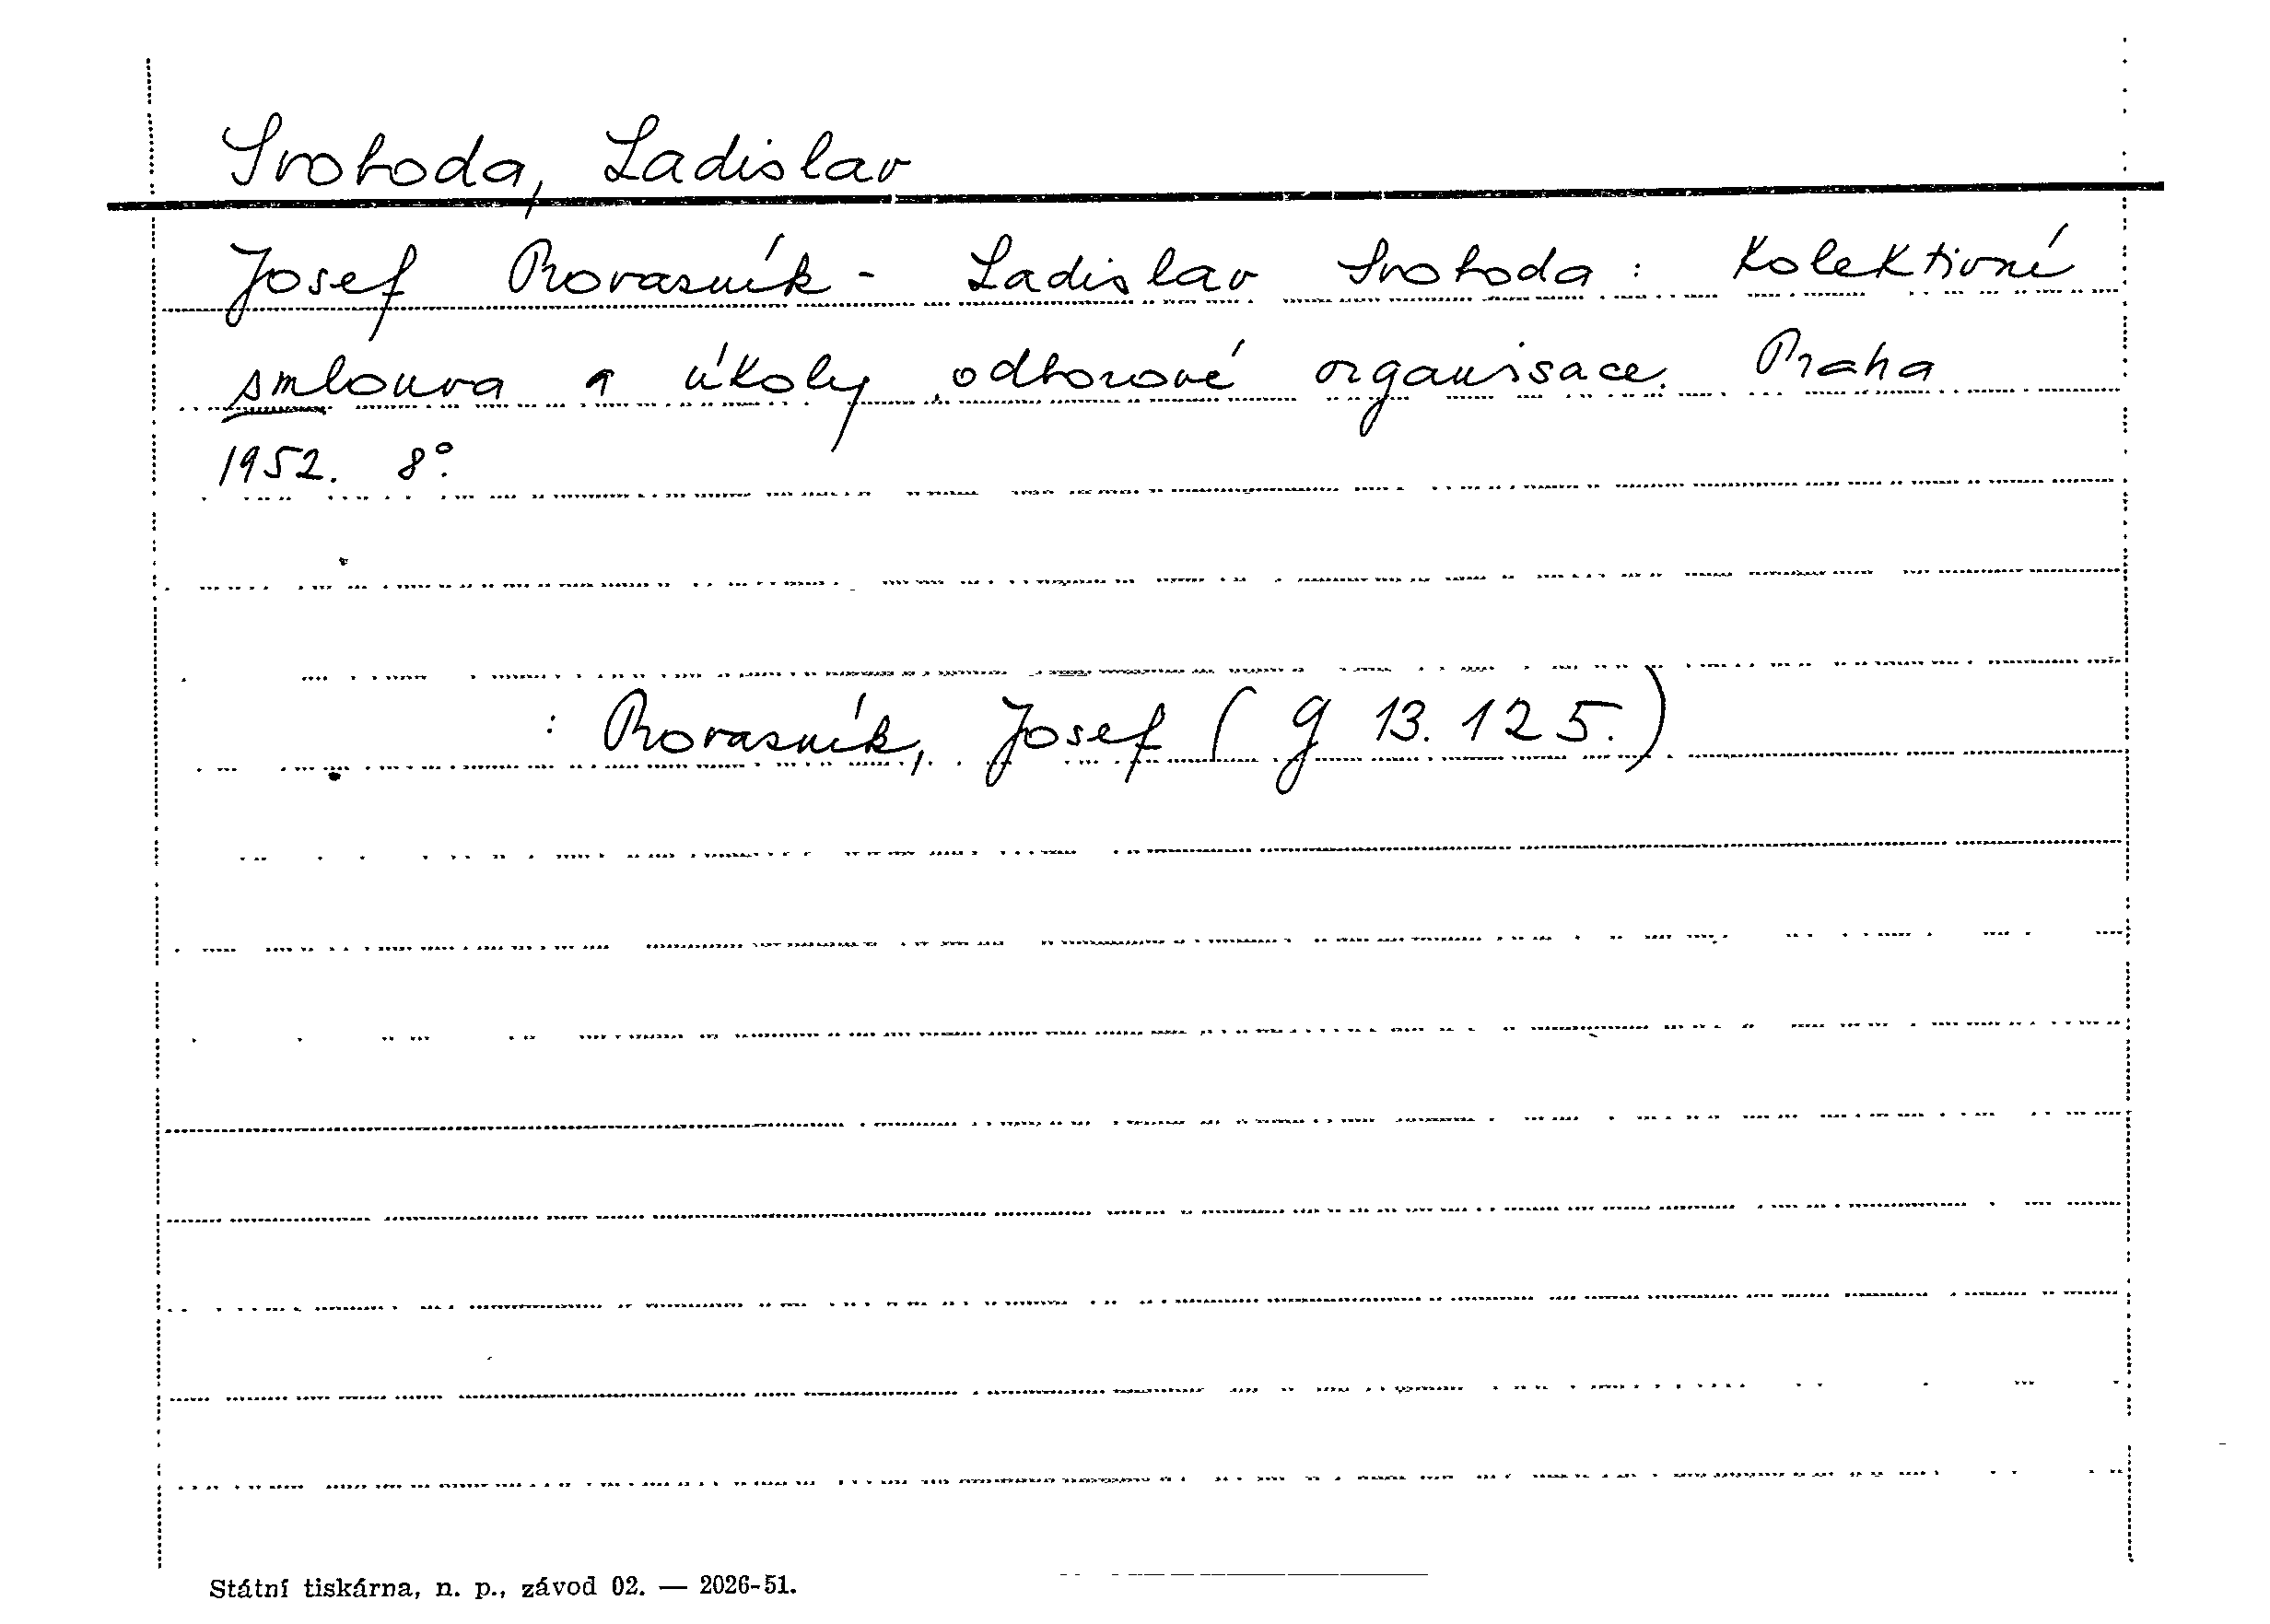 Svoboda, Ladislav
Josef Provazník - Ladislav Svoboda: Kolektivní
smlouva a úkoly odborové organisace. Praha
1952. 8°.
: Provazník, Josef (g 13.125.)
Státní tiskárna, n. p., závod 02. — 2026-51.